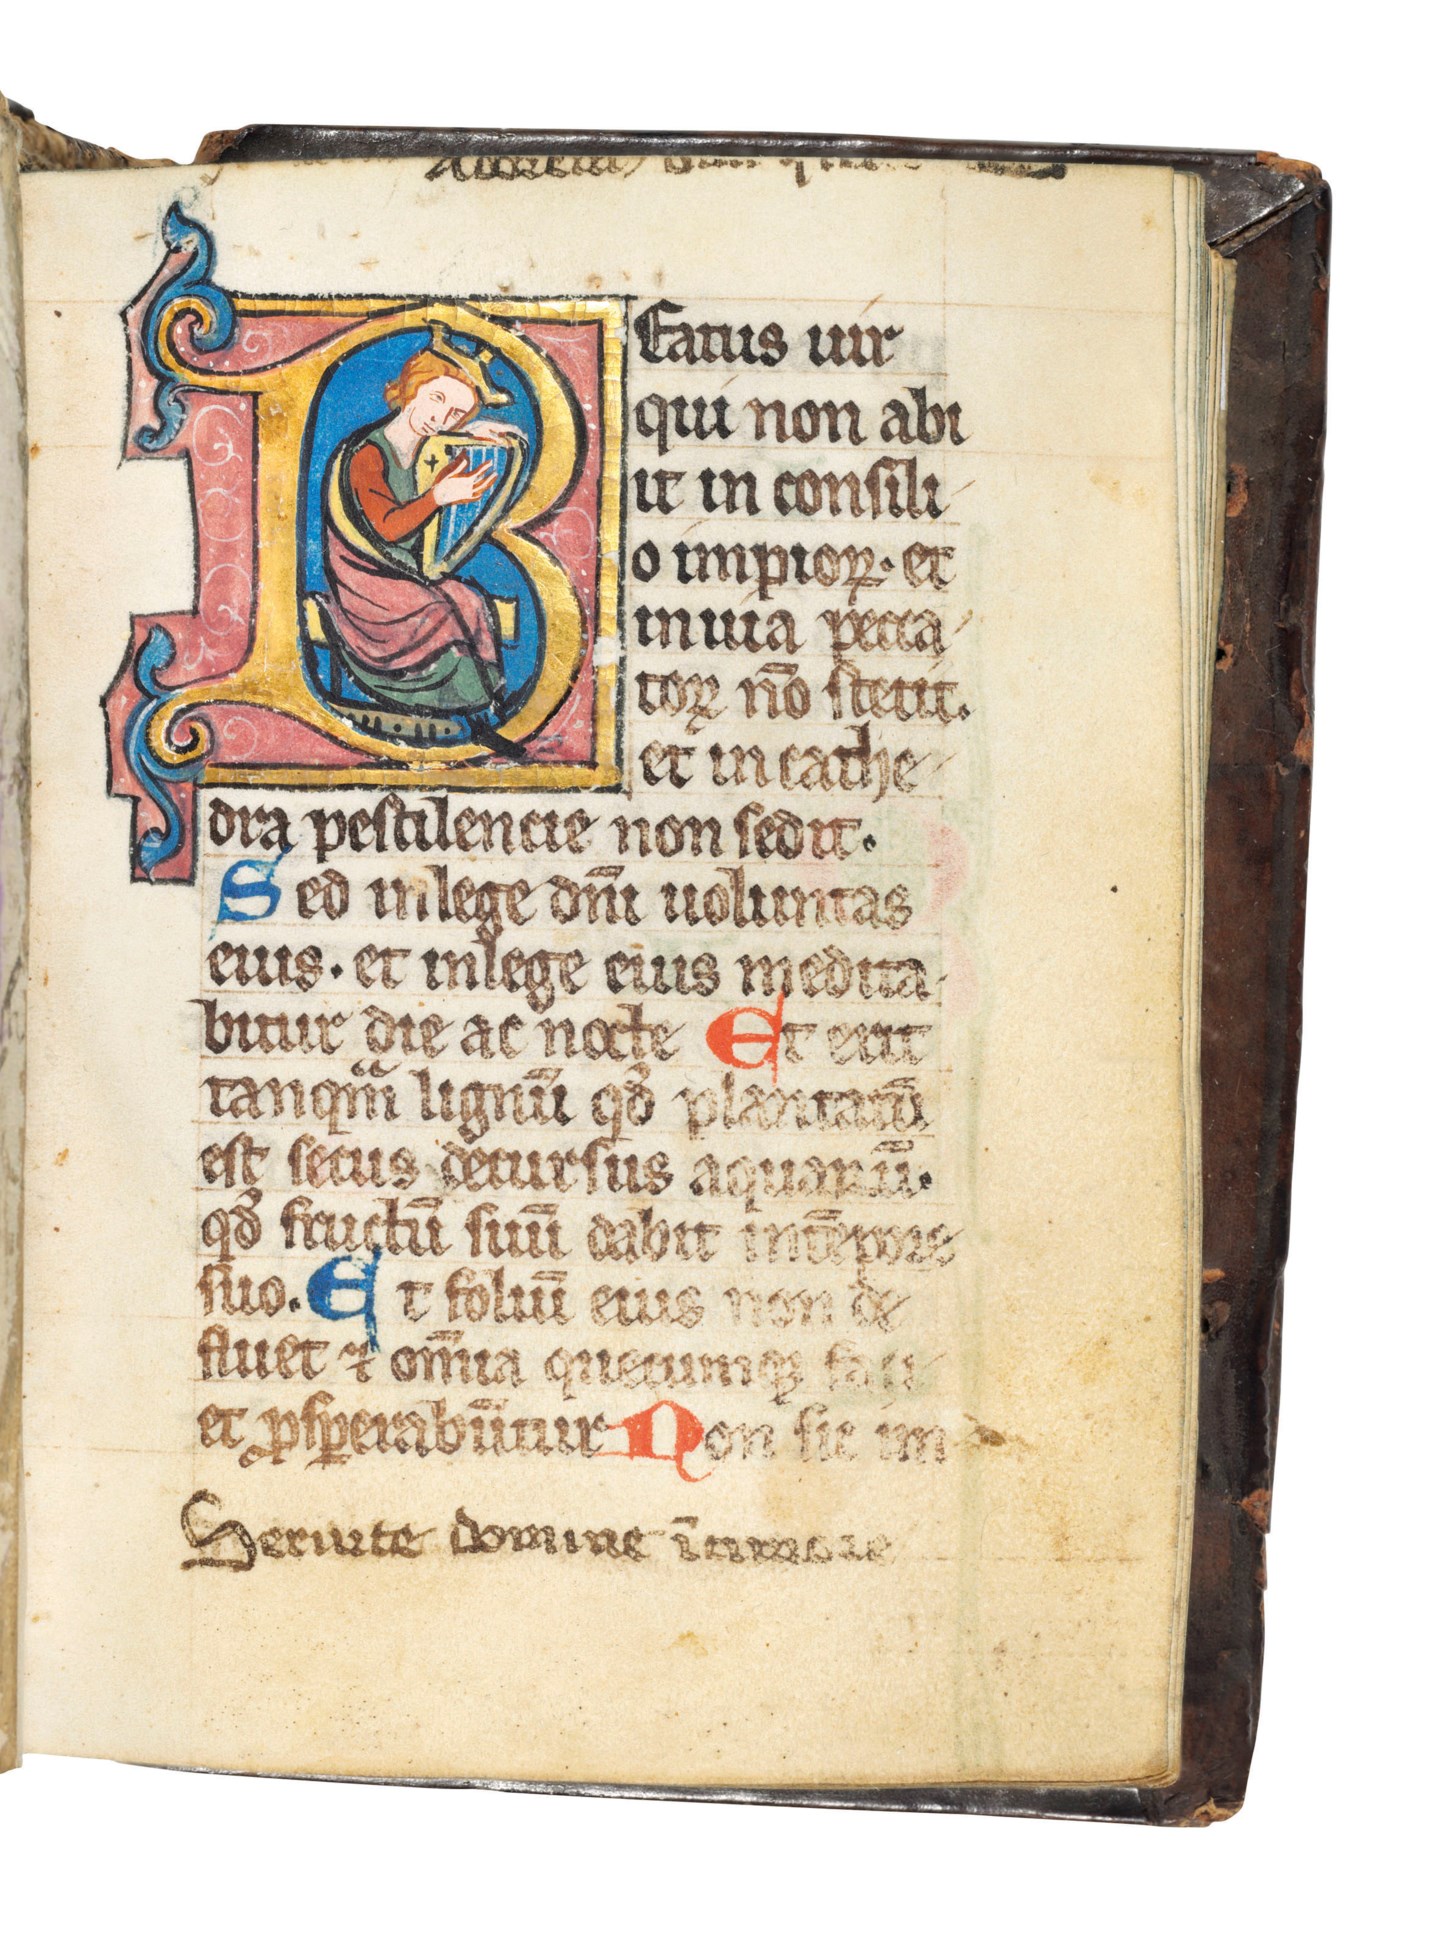 Beatus uir
qui non abi
it in consili
o impioꝝ. et
in uia pecca
toꝝ nō stetit.
et in cathe
dra pestilencie non sedit.
Sed in lege dn̄i uoluntas
eius. et in lege eius medita
bitur die ac nocte Et erit
tanqᵃm lignū qd̛ plantatū
est secus decursus aquarū.
qd̛ fructū suū dabit in tēpore
suo. Et foliū eius non de
fluet ⁊ om̄ia quecumqꝫ faci
et ꝓsꝑabūtur Non sic im
Seruite domine ī timore